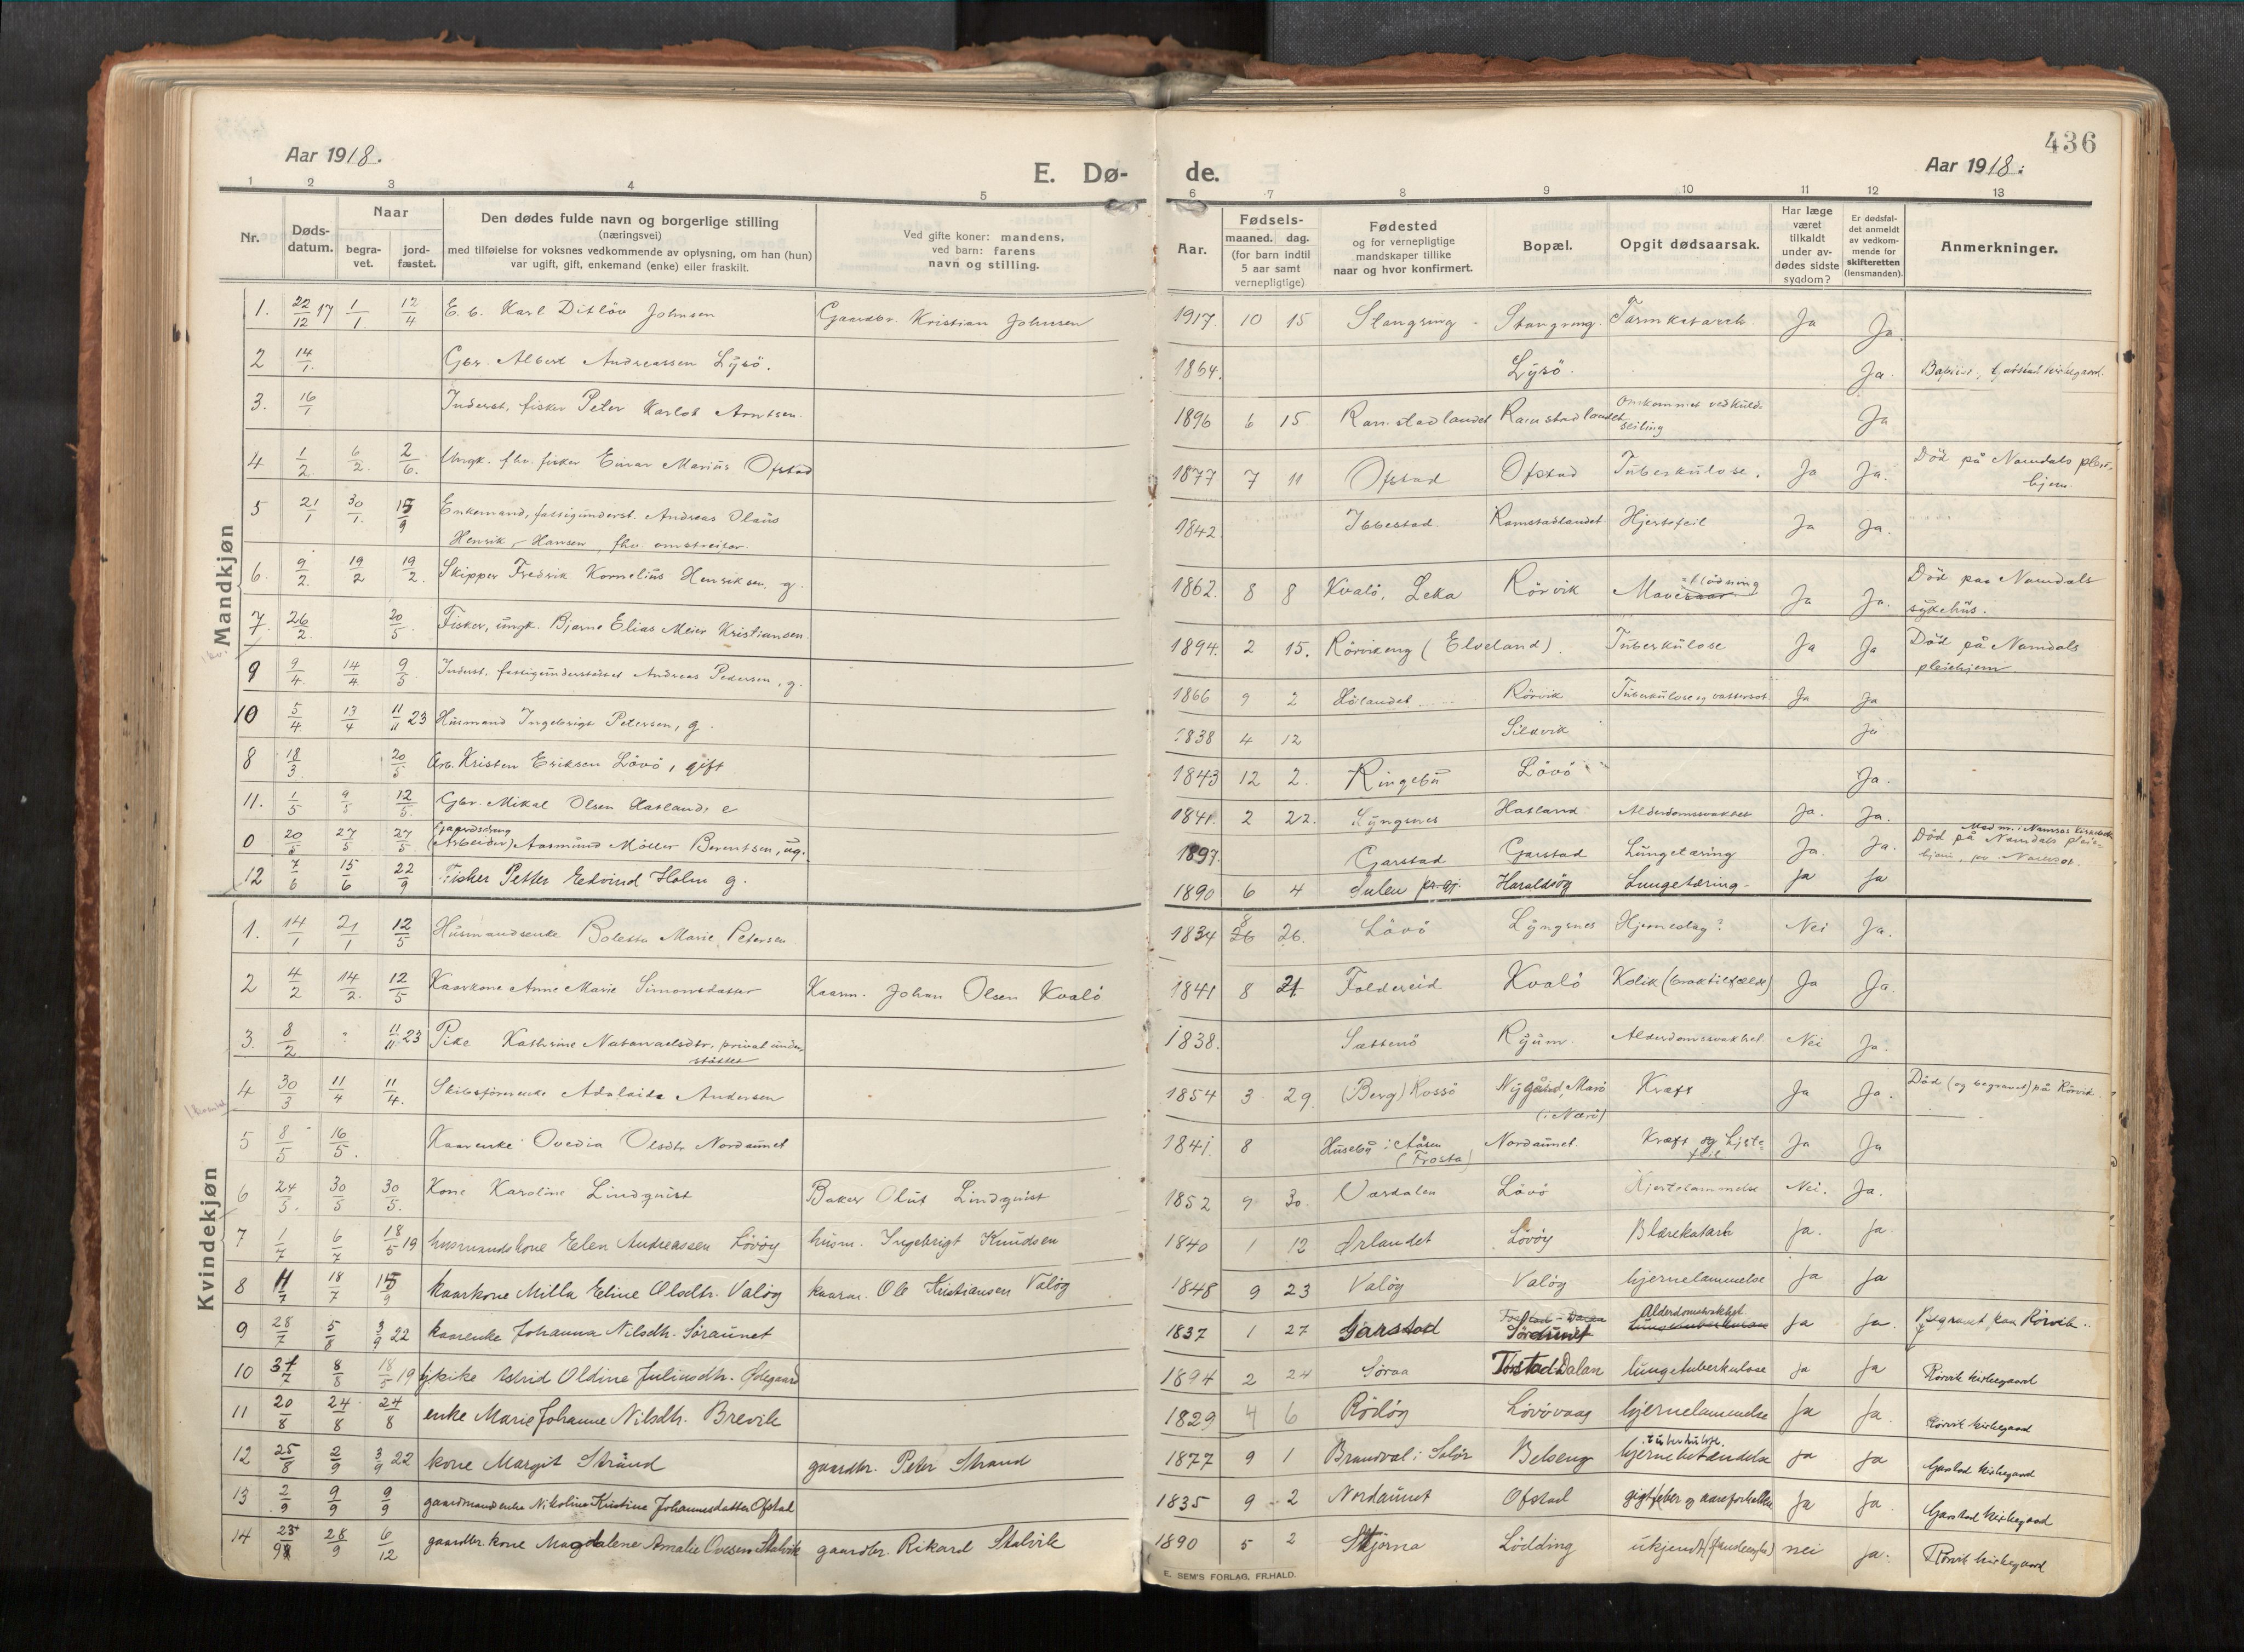 436
Aar 1918.
E. Dø-
de.
Aar 1918.
1 2 3 4 5 6 7 8 9 10 11 12 13
Nr.
Døds-
datum.
Naar
begra-
vet.
jord-
fæstet.
Den dødes fulde navn og borgerlige stilling
(næringsvei)
med tilføielse for voksnes vedkommende av oplysning, om han (hun)
var ugift, gift, enkemand (enke) eller fraskilt.
Ved gifte koner: mandens,
ved barn: farens
navn og stilling.
Aar.
Fødsels-
maaned. dag.
(for barn indtil
5 aar samt
vernepligtige)
Fødested
og for vernepligtige
mandskaper tillike
naar og hvor konfirmert.
Bopæl.
Opgit dødsaarsak.
Har læge
været
tilkaldt
under av-
dødes sidste
sygdom?
Er dødsfal-
det anmeldt
av vedkom-
mende for
skifteretten
(lensmanden).
Anmerkninger.
Mandkjøn
1. 22/12 17 1/1 12/4 E. b. Karl Ditlöv Johnsen Gaardbr. Kristian Johnsen 1917. 10 15 Slangsrug - Tarmkatarrh Ja Ja.
2 14/1. Gbr. Albert Andreassen Lysö. 1864. Lysö. Ja. Baptist, Garstad kirkegaard.
3. 16/1 Inderst, fisker Peter Karlot Arntsen. 1896 6 15 Ramstadlandet Ramstadlandet Omkommet ved kuld-
seiling Ja
4 1/2. 6/2. 2/6. Ungk. fhv. fisker Einar Marius Ofstad 1877 7 11 Ofstad Ofstad Tuberkulose. Ja Ja. Död på Namdals pleie-
hjem.
5 21/1 30/1. 15/9 Enkemand, fattigunderst. Andreas Olaus
Henrik Hansen, fhv. omstreifer. 1842 Ibbestad. Ramstadlandet Hjertefeil Ja Ja.
6. 9/2. 19/2 19/2. Skipper Fredrik Kornelius Henriksen, g. 1862. 8 8 Kvalö, Leka Rörvik Mave-blödning Ja Ja. Död paa Namdals
sykehus.
7. 26/2. 20/5. Fisker, ungk. Bjarne Elias Meier Kristiansen. 1894. 2 15. Rörvikeng (Elveland). Tuberkulose Ja Ja Död på Namdals
pleiehjem
9 9/4. 14/4. 9/5 Inderst. fattigunderstöttet Andreas Pedersen, g. 1866 9 2 Hölandet Rörvik Tuberkulose og vattersot Ja Ja
10 5/4 13/4 11/11 23 Husmand Ingebrigt Petersen, g. 1838 4 12 Silavik Ja
8 18/3. 20/5 Arb. Kristen Eriksen Lövö, gift 1843 12 2. Ringebu Lövö Ja.
11. 1/5 9/5 12/5. Gbr. Mikal Olsen Hatland, e 1841. 2 22. Lyngsnes Hatland Alderdomssvakhet Ja. Ja.
0 20/5 27/5 27/5. Gaardsdreng
(Arbeider) Aasmund Möller Berentsen, ug. 1897. Garstad Garstad Lungetæring Ja. Ja. Medm. i Namsos kirkebok
Död på Namdals pleie-
hjem, pr. Namsos.
12 7/6 15/6 22/9 Fisker Petter Edvind Holm g. 1890 6 4 Sulen pr.gj. Haraldsöy Lungetæring - Ja Ja
Kvindekjøn
1. 14/1 21/1 12/5 Husmandsenke Boletta Marie Petersen 1834 8 26 26. Lövö Lyngsnes Hjerneslag? Nei Ja.
2 4/2 14/2. 12/5 Kaarkone Anne Marie Simonsdatter Kaarm. Johan Olsen Kvalö 1841 8 21 Foldereid Kvalö Kolik (braktilfælde) Ja Ja.
3. 8/2 11/11 23 Pike Kathrine Natanaelsdtr, privat under-
støttet 1838. Sættenö Ryum Alderdomssvakhet. Nei Ja.
4 30/3 11/4 11/4. Skibsförerenke Adelaide Andersen 1854 3 29. (Berg) Rossö Nygård, Marö
(i Nærö) Kræft Ja Ja. Död (og begravet) på Rörvik
5 8/5 16/5. Kaarenke Ovedia Olsdtr Nordaunet 1841. 8 Huseby i Aasen
(Frosta) Nordaunet. Kræft og hjerte-
feil Ja Ja
6 24/5. 30/5 30/5. Kone Karoline Lindquist Baker Oluf Lindquist 1852 9 30. Værdalen Lövö Hjertelammelse Nei. Ja.
7 1/7 6/7 18/5 19 husmandskone Elen Andreassen Lövöy husm. Ingebrigt Knudsen 1840 1 12 Ørlandet Lövöy Blærekatarh Ja. Ja
8 11/7 18/7 15/9 kaarkone Milla Eline Olsdtr. Valöy kaarm. Ole Kristiansen Valöy 1848 9 23 Valöy Valöy hjernelammelse Ja Ja
9 28/7 5/8 3/9 22 kaarenke Johanna Nilsdtr. Söraunet 1837 1 27 Garstad Söraunet Alderdomssvakhet
lungetuberkulose Ja Ja. Begravet paa Rörvik.
10 31/7 8/8 18/5 19 pike Astrid Oldine Juliusdtr. Ødegaard 1894 2 24 Söraa Torstad Dalan lungetuberkulose Ja Ja Rörvik kirkegaard
11 20/8 24/8 24/8 enke Marie Johanne Nilsdtr. Brevik 1829 4 6 Rödöy Lövövaag hjernelammelse Ja Ja. Rörvik kirkegaard
12 25/8 2/9 3/9 22 kone Margit Strand gaardbr. Peter Strand 1877 9 1 Brandval i Solör Belseng tuberkuløse.
hjernebetændelse Ja Ja Garstad kirkegaard
13 2/9 9/9 9/9 gaardmandsenke Nikoline Kristine Johannesdatter Ofstad 1835 9 2 Nordaunet Ofstad gigtfeber og aareforkalkn Ja Ja. Garstad kirkegaard
14 23/9 28/9 6/12 gaardbr. kone Magdalene Amalie Ovesen Stalvik gaardbr. Rikard Stalvik 1890 5 2 Stjörna Lödding ukjendt nei Ja. Rörvik kirkegaard
E. SEM'S FORLAG, FR.HALD.